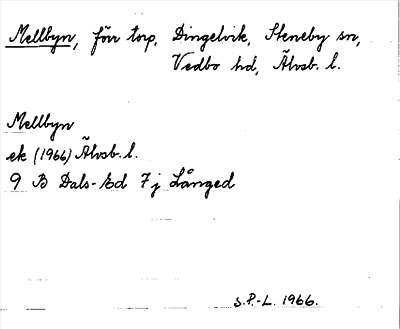 Mellbyn, förr torp, Dingelvik, Steneby sn,
Vedbo hd, Älvsb. l.
Mellbyn
ek (1966) Älvsb. l.
9 B Dals-Ed 7j Långed
S.P.-L. 1966.